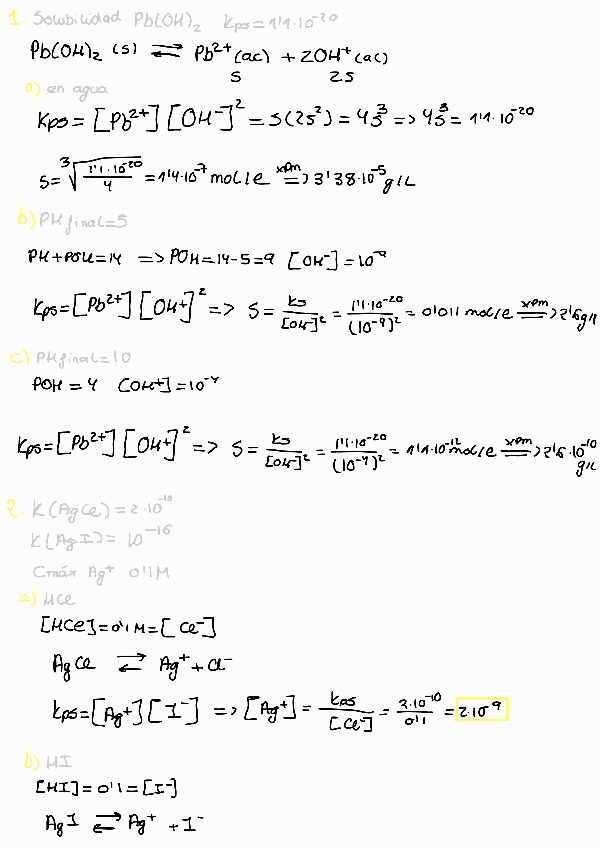 1. Solubilidad Pb(OH)₂ Kps = 1'1·10⁻²⁰
Pb(OH)₂ (s) ⇌ Pb²⁺(ac) + 2OH⁺(ac)
S 2S
a) en agua
Kps = [Pb²⁺][OH⁻]² = S(2S²) = 4S³ => 4S³ = 1'1·10⁻²⁰
S = ³√(1'1·10⁻²⁰/4) = 1'4·10⁻⁷ mol/l =xPm=> 3'38·10⁻⁵ g/L
b) PH final = 5
PH + POH = 14 => POH = 14-5 = 9 [OH⁻] = 10⁻⁹
Kps = [Pb²⁺][OH⁺]² => S = ks/[OH⁻]² = 1'1·10⁻²⁰/(10⁻⁹)² = 0'011 mol/l =xPm=> 2'6 g/L
c) PH final = 10
POH = 4 [OH⁺] = 10⁻⁴
Kps = [Pb²⁺][OH⁺]² => S = ks/[OH⁻]² = 1'1·10⁻²⁰/(10⁻⁴)² = 1'1·10⁻¹² mol/l =xPm=> 2'6·10⁻¹⁰
g/L
2. K(AgCl) = 2·10⁻¹⁰
K(AgI) = 10⁻¹⁶
Cmáx Ag⁺ 0'1M
a) HCl
[HCl] = 0'1M = [Cl⁻]
AgCl ⇌ Ag⁺ + Cl⁻
Kps = [Ag⁺][I⁻] => [Ag⁺] = Kps/[Cl⁻] = 2·10⁻¹⁰/0'1 = 2·10⁻⁹
b) HI
[HI] = 0'1 = [I⁻]
AgI ⇌ Ag⁺ + I⁻